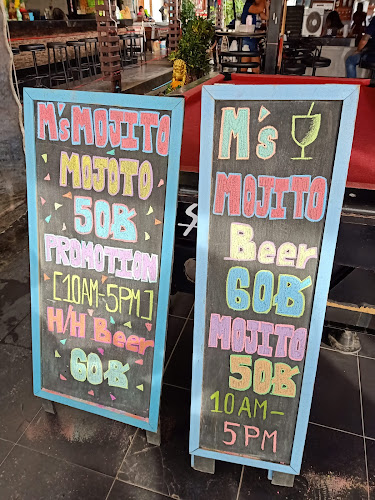 M's MOJITO
MOJOTO
50฿
PROMOTION
[10AM-5PM]
H/H Beer
60฿
M's
MOJITO
Beer
60฿
MOJITO
50฿
10AM-
5PM